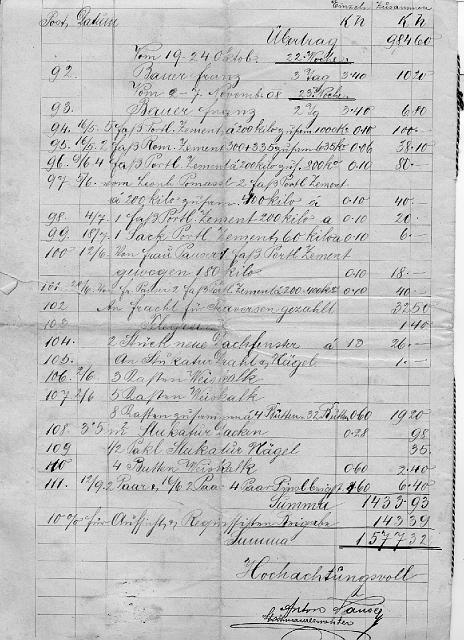 Einzeln Zusammen
Post, Datum K h K h
Übertrag 984 60
Vom 19-24 Oktob. 22. Woche
92. Bauer Franz 3 Tag 3·40 10 20
Vom 2-7 November 08 23. Woche
93. Bauer Franz 2 Tg 3·40 6·80
94. 16/5. 5 Faß Portl Zement á 200 kilo zusam 1000 Ko 0·10 100·—
95. 2 Faß Rom. Zement 300+335 zusam 635 Ko 0·06 38·10
96. 4 Faß Portl Zement á 200 kilo zus. 800 Ko 0·10 80·—
97. vom Leopl. 2 Faß Portl Zement
á 200 kilo zusam. 400 kilo á 0·10 40·—
98. 4/7. 1 Faß Portl Zement 200 kilo a 0·10 20·—
99. 18/7. 1 Sack Portl Zement, 60 kilo a 0·10 6·—
100 12/6. Von Frau 1 Faß Portl Zement
gewogen 180 kilo 0·10 18·—
101. 2 Faß Portl Zement á 200 400 Ko 0·10 40·—
102 An Fracht für Traversen gezahlt 32 50
103 1 40
104. 2 Stück neue Dachfenster á 13 26·—
105. An Stukatur Draht & Nägel 1·—
106. 2/6. 3 Kasten Weiskalk
107 2/6 5 Kasten Weiskalk
8 Kasten zusammen á 4 Butten 32 Butten 0·60 19 20
108. 3·5 m² Stukatur 0·28 98
109 1/2 Pakl Stukatur Nägel 35
110 4 Butten Weiskalk 0·60 2·40
111. 12/9 2 Paar & 2 Paar 4 Paar 1·60 6·40
Summa 1433·93
10% für Aufsicht & 143 39
Summa 1577 32
Hochachtungsvoll
Anton